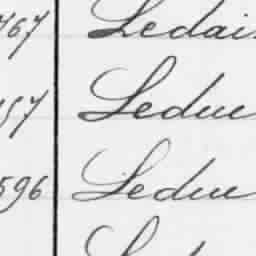 767 Ledai
157 Leduc
596 Leduc